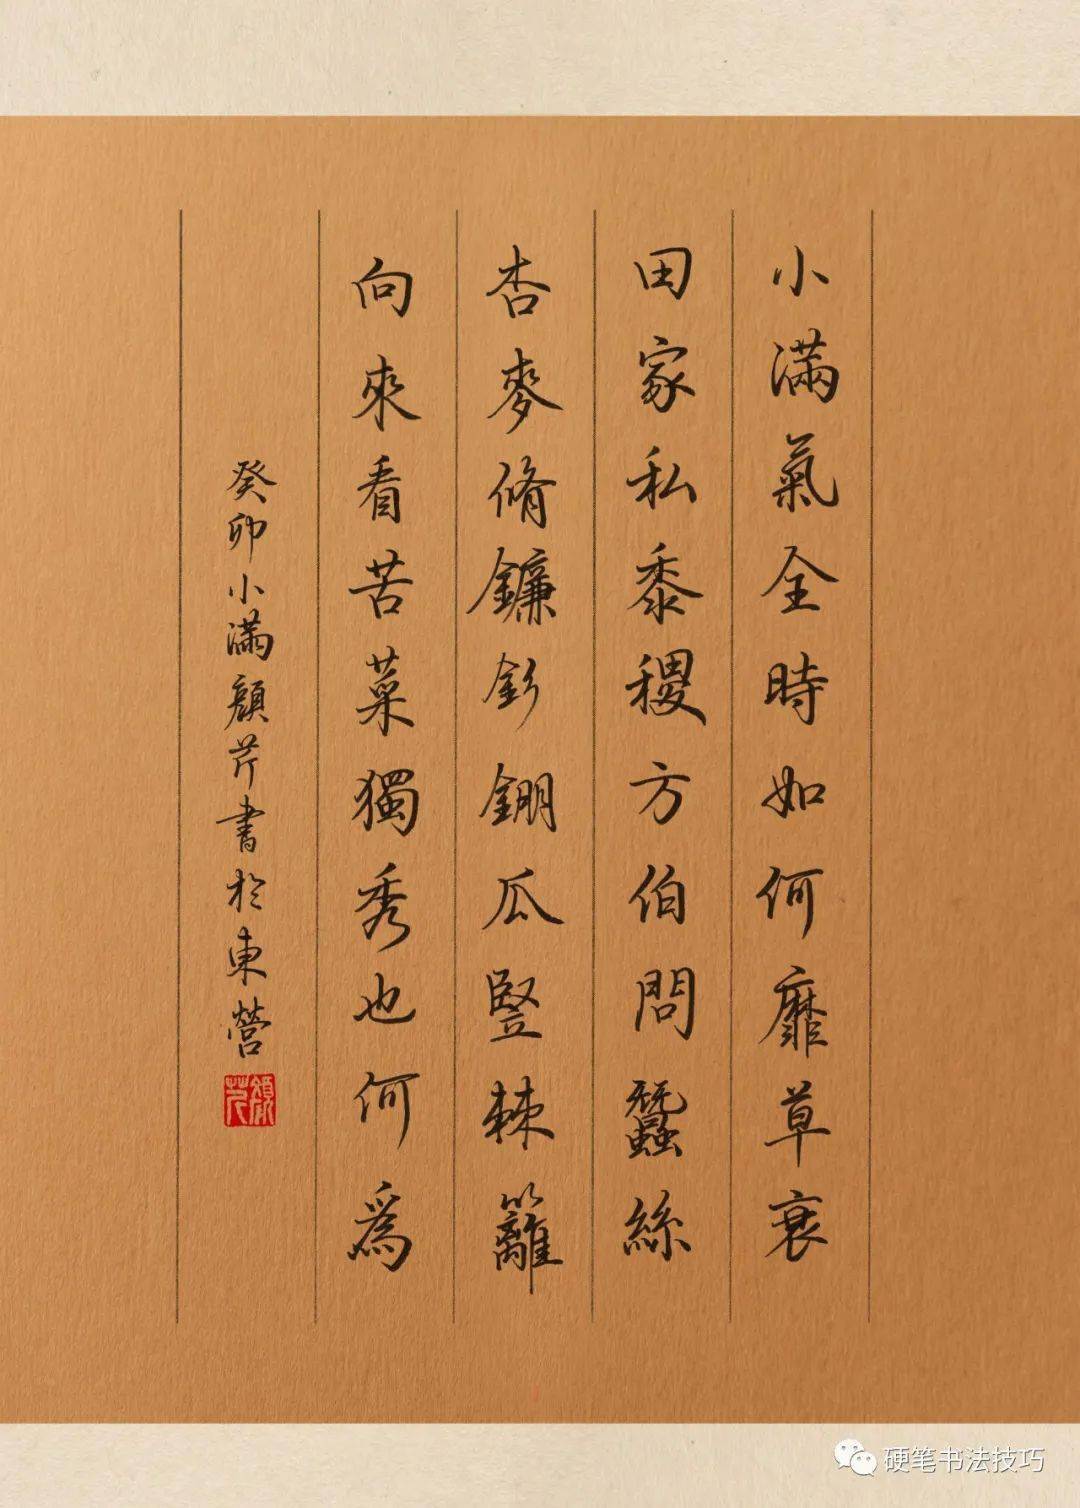 小滿氣全時如何靡草衰
田家私黍稷方伯問蠶絲
杏麥脩鐮釤錋瓜豎棘籬
向來看苦菜獨秀也何爲
癸卯小滿顏芹書於東營
顏芹
硬笔书法技巧